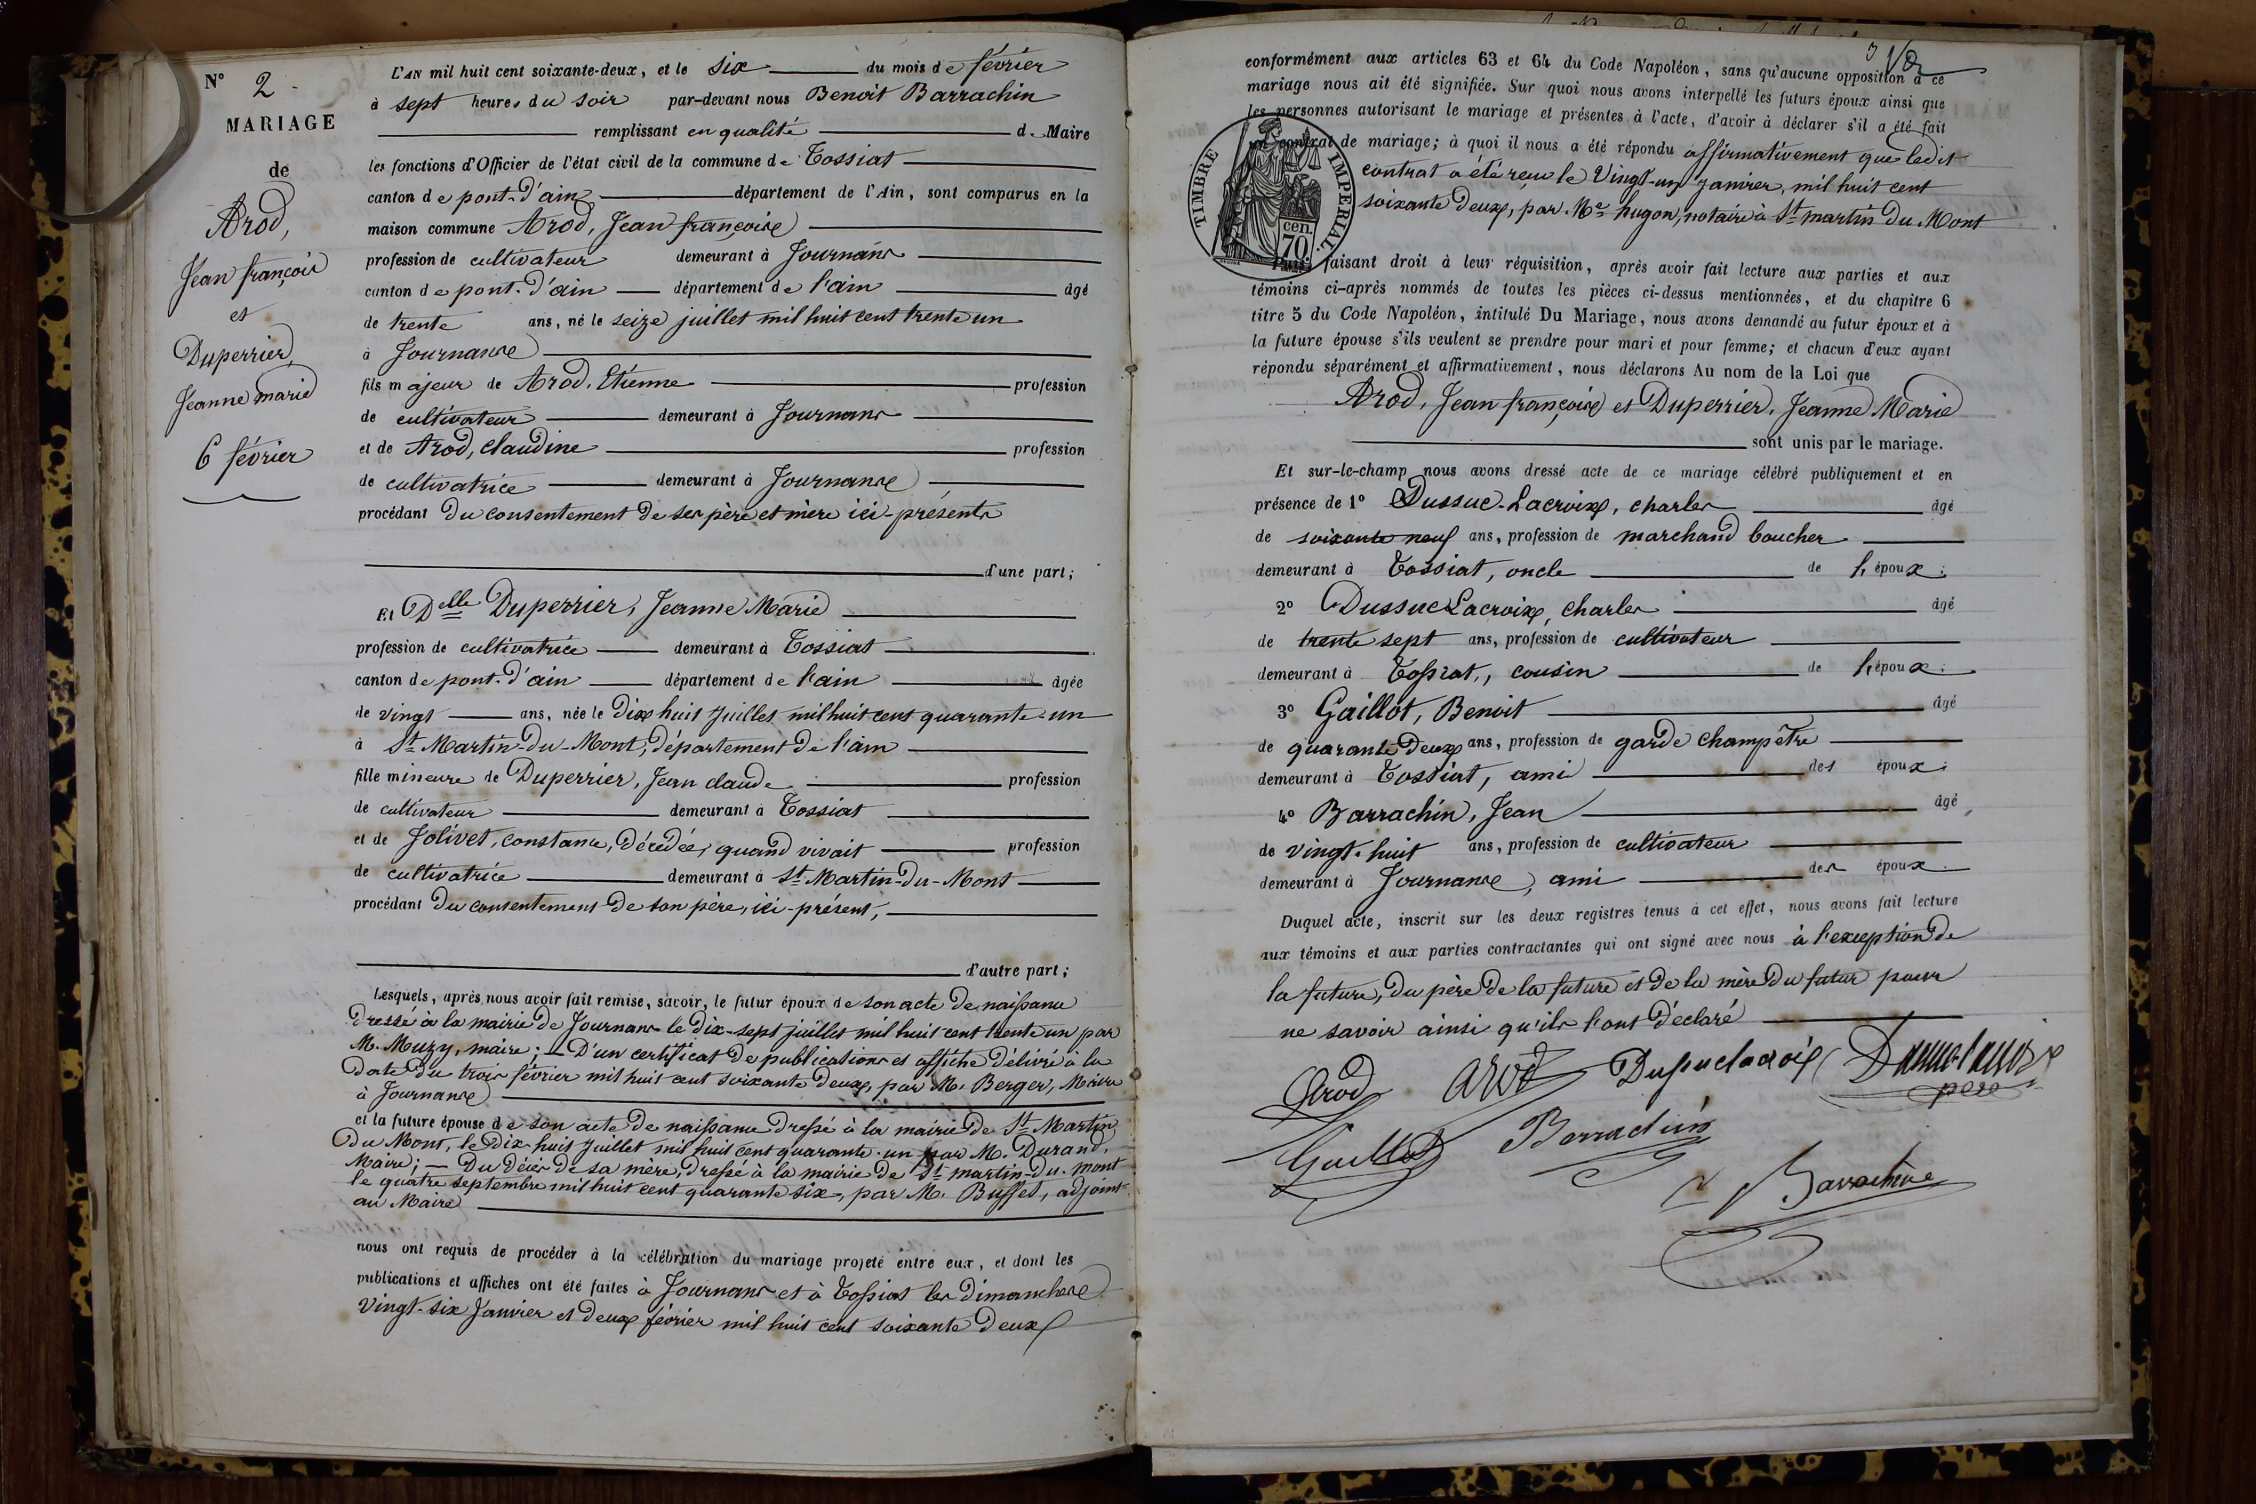 N° 2
MARIAGE
de
Arod,
Jean françois
et
Duperrier,
Jeanne marie
6 février
L'AN mil huit cent soixante-deux, et le six du mois de février
à sept heures du soir par-devant nous Benoit Barrachin
remplissant en qualité de Maire
les fonctions d'Officier de l'état civil de la commune de Tossiat
canton de pont-d'ain département de l'Ain, sont comparus en la
maison commune Arod, Jean françois
profession de cultivateur demeurant à Journans
canton de pont-d'ain département de l'ain âgé
de trente ans, né le seize juillet mil huit cent trente un
à Journans
fils majeur de Arod, Etienne profession
de cultivateur demeurant à Journans
et de Arod, claudine profession
de cultivatrice demeurant à Journans
procédant du consentement de ses père et mère ici-présents
d'une part;
Et Delle Duperrier, Jeanne Marie
profession de cultivatrice demeurant à Tossiat
canton de pont-d'ain département de l'ain âgée
de vingt ans, née le dix huit Juillet mil huit cent quarante-un
à St Martin-du-Mont, département de l'ain
fille mineure de Duperrier, Jean claude profession
de cultivateur demeurant à Tossiat
et de Jolivet, constance, décédée, quand vivait profession
de cultivatrice demeurant à St Martin-du-Mont
procédant du consentement de son père, ici-présent,
d'autre part;
Lesquels, après nous avoir fait remise, savoir, le futur époux de son acte de naissance
dressé à la mairie de Journans le dix-sept juillet mil huit cent trente un par
M. Muzy, maire; — D'un certificat de publications et affiche délivré à la
date du trois février mil huit cent soixante deux, par M. Berger, Maire
à Journans
et la future épouse de son acte de naissance dressé à la mairie de St Martin
du Mont, le dix-huit Juillet mil huit cent quarante-un par M. Durand,
Maire; — Du décès de sa mère, dressé à la mairie de St martin-du-mont
le quatre septembre mil huit cent quarante six, par M. Buffet, adjoint
au Maire
nous ont requis de procéder à la célébration du mariage projeté entre eux, et dont les
publications et affiches ont été faites à Journans et à Tossiat les dimanches
vingt-six Janvier et deux février mil huit cent soixante deux
3
conformément aux articles 63 et 64 du Code Napoléon, sans qu'aucune opposition à ce
mariage nous ait été signifiée. Sur quoi nous avons interpellé les futurs époux ainsi que
les personnes autorisant le mariage et présentes à l'acte, d'avoir à déclarer s'il a été fait
un contrat de mariage; à quoi il nous a été répondu affirmativement que ledit
contrat a été reçu le vingt-un janvier, mil huit cent
soixante deux, par Me hugon, notaire à St martin du Mont
TIMBRE IMPERIAL.
70 cen.
Puis, faisant droit à leur réquisition, après avoir fait lecture aux parties et aux
témoins ci-après nommés de toutes les pièces ci-dessus mentionnées, et du chapitre 6
titre 5 du Code Napoléon, intitulé Du Mariage, nous avons demandé au futur époux et à
la future épouse s'ils veulent se prendre pour mari et pour femme; et chacun d'eux ayant
répondu séparément et affirmativement, nous déclarons Au nom de la Loi que
Arod, Jean françois et Duperrier, Jeanne Marie
sont unis par le mariage.
Et sur-le-champ nous avons dressé acte de ce mariage célébré publiquement et en
présence de 1° Dussuc-Lacroix, charles âgé
de soixante neuf ans, profession de marchand boucher
demeurant à Tossiat, oncle de l'époux.
2° Dussuc Lacroix, charles âgé
de trente sept ans, profession de cultivateur
demeurant à Tossiat, cousin de l'époux.
3° Gaillot, Benoit âgé
de quarante deux ans, profession de garde champêtre
demeurant à Tossiat, ami des époux.
4° Barrachin, Jean âgé
de vingt-huit ans, profession de cultivateur
demeurant à Journans, ami des époux.
Duquel acte, inscrit sur les deux registres tenus à cet effet, nous avons fait lecture
aux témoins et aux parties contractantes qui ont signé avec nous à l'exception de
la future, du père de la future et de la mère du futur pour
ne savoir ainsi qu'ils l'ont déclaré
Arod Arod Dusuclacroix
père
Gaillot Barrachin
Barrachin